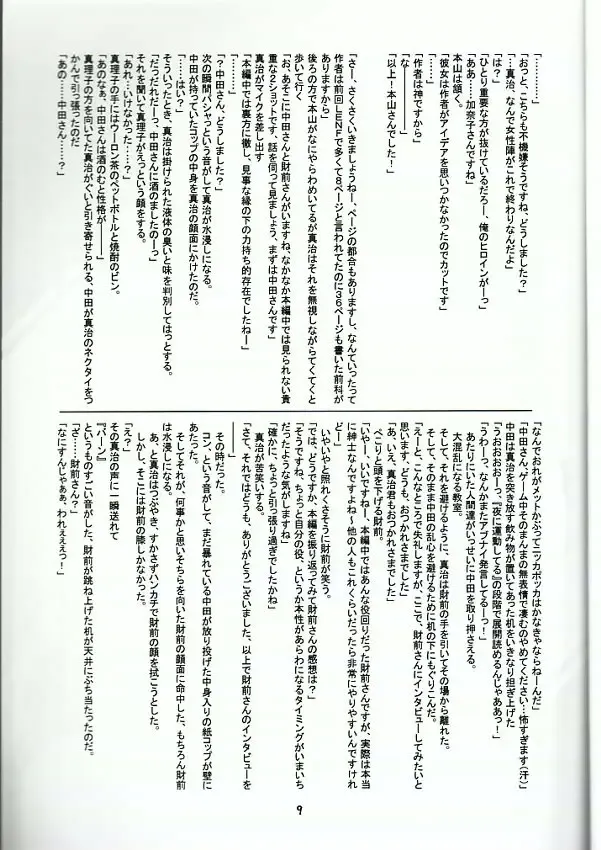 「………」
「おっと、こちらも不機嫌そうですね、どうしました？」
「…真治、なんで女性陣がこれで終わりなんだよ」
「は？」
「ひとり重要な方が抜けているだろー、俺のヒロインがーっ」
「ああ……加奈子さんですね」
本山は頷く。
「彼女は作者がアイデアを思いつかなかったのでカットです」
「……」
「作者は神ですから」
「な――――」
「以上！本山さんでした！」
「さー、さくさくいきましょうねー、ページの都合もありますし、なんていったって
作者は前回ＬＥＮＦで多くて８ページと言われてたのに３６ページも書いた前科が
ありますから」
後ろの方で本山がなにやらわめいてるが真治はそれを無視しながらてくてくと
歩いて行く
「お、あそこに中田さんと財前さんがいますね、なかなか本編中では見られない貴
重な２ショットです、話を伺って見ましょう、まずは中田さんです」
真治がマイクを差し出す
「本編中では裏方に徹し、見事な縁の下の力持ち的存在でしたねー」
「………」
「？中田さん、どうしました？」
次の瞬間バシャっという音がして真治が水浸しになる。
中田が持っていたコップの中身を真治の顔面にかけたのだ。
「……はい？」
そういったとき、真治は掛けられた液体の臭いと味を判別してはっとする。
「だっだれだーっ、中田さんに酒のましたのーっ」
それを聞いて真理子がえっという顔をする。
「あれ…いけなかった……？」
真理子の手にはウーロン茶のペットボトルと焼酎のビン。
「あのなぁ、中田さんは酒のむと性格が――――」
真理子の方を向いてた真治がぐいと引き寄せられる、中田が真治のネクタイをつ
かんで引っ張ったのだ
「あの……中田さん……？」
「なんでおれがメットかぶってニッカボッカはかなきゃならねーんだ」
「中田さん、ゲーム中そのまんまの無表情で凄むのやめてください…怖すぎます（汗）」
中田は真治を突き放す飲み物が置いてあった机をいきなり担ぎ上げた
「うおおおおーっ、『夜に運動してる』の段階で展開読めるんじゃああっ！」
「うわーっ、なんかまたアブナイ発言してるーっ！」
あたりにいた人間達がいっせいに中田を取り押さえる。
大混乱になる教室。
そして、それを避けるように、真治は財前の手を引いてその場から離れた。
そして、そのまま中田の乱心を避けるために机の下にもぐりこんだ。
「えーと、こんなところで失礼しますが、ここで、財前さんにインタビューしてみたいと
思います、どうも、おつかれさまでした」
「あ、いえ、真治君もおつかれさまでした」
ぺこりと頭を下げる財前。
「いやー、いいですねー、本編中ではあんな役回りだった財前さんですが、実際は本当
に紳士なんですよね～他の人もこれくらいだったら非常にやりやすいんですけれ
どー」
いやいやと照れくさそうに財前が笑う。
「では、どうですか、本編を振り返ってみて財前さんの感想は？」
「そうですね、ちょっと自分の役、というか本性があらわになるタイミングがいまいち
だったような気がしますね」
「確かに、ちょっと引っ張り過ぎでしたかね」
真治が苦笑いする。
「さて、それではどうも、ありがとうございました、以上で財前さんのインタビューを
――――」
その時だった。
コン、という音がして、まだ暴れている中田が放り投げた中身入りの紙コップが壁に
あたった。
そしてそれが、何事かと思いそちらを向いた財前の顔面に命中した、もちろん財前
は水浸しになる。
あ、と真治はつぶやき、すかさずハンカチで財前の顔を拭こうとした。
しかし、そこには財前の膝しかなかった。
「え？」
その真治の声に一瞬送れて
『バーン』
というものすごい音がした、財前が跳ね上げた机が天井にぶち当たったのだ。
「ざ……財前さん？」
「なにすんじゃぁぁ、われぇぇえっ！」
9